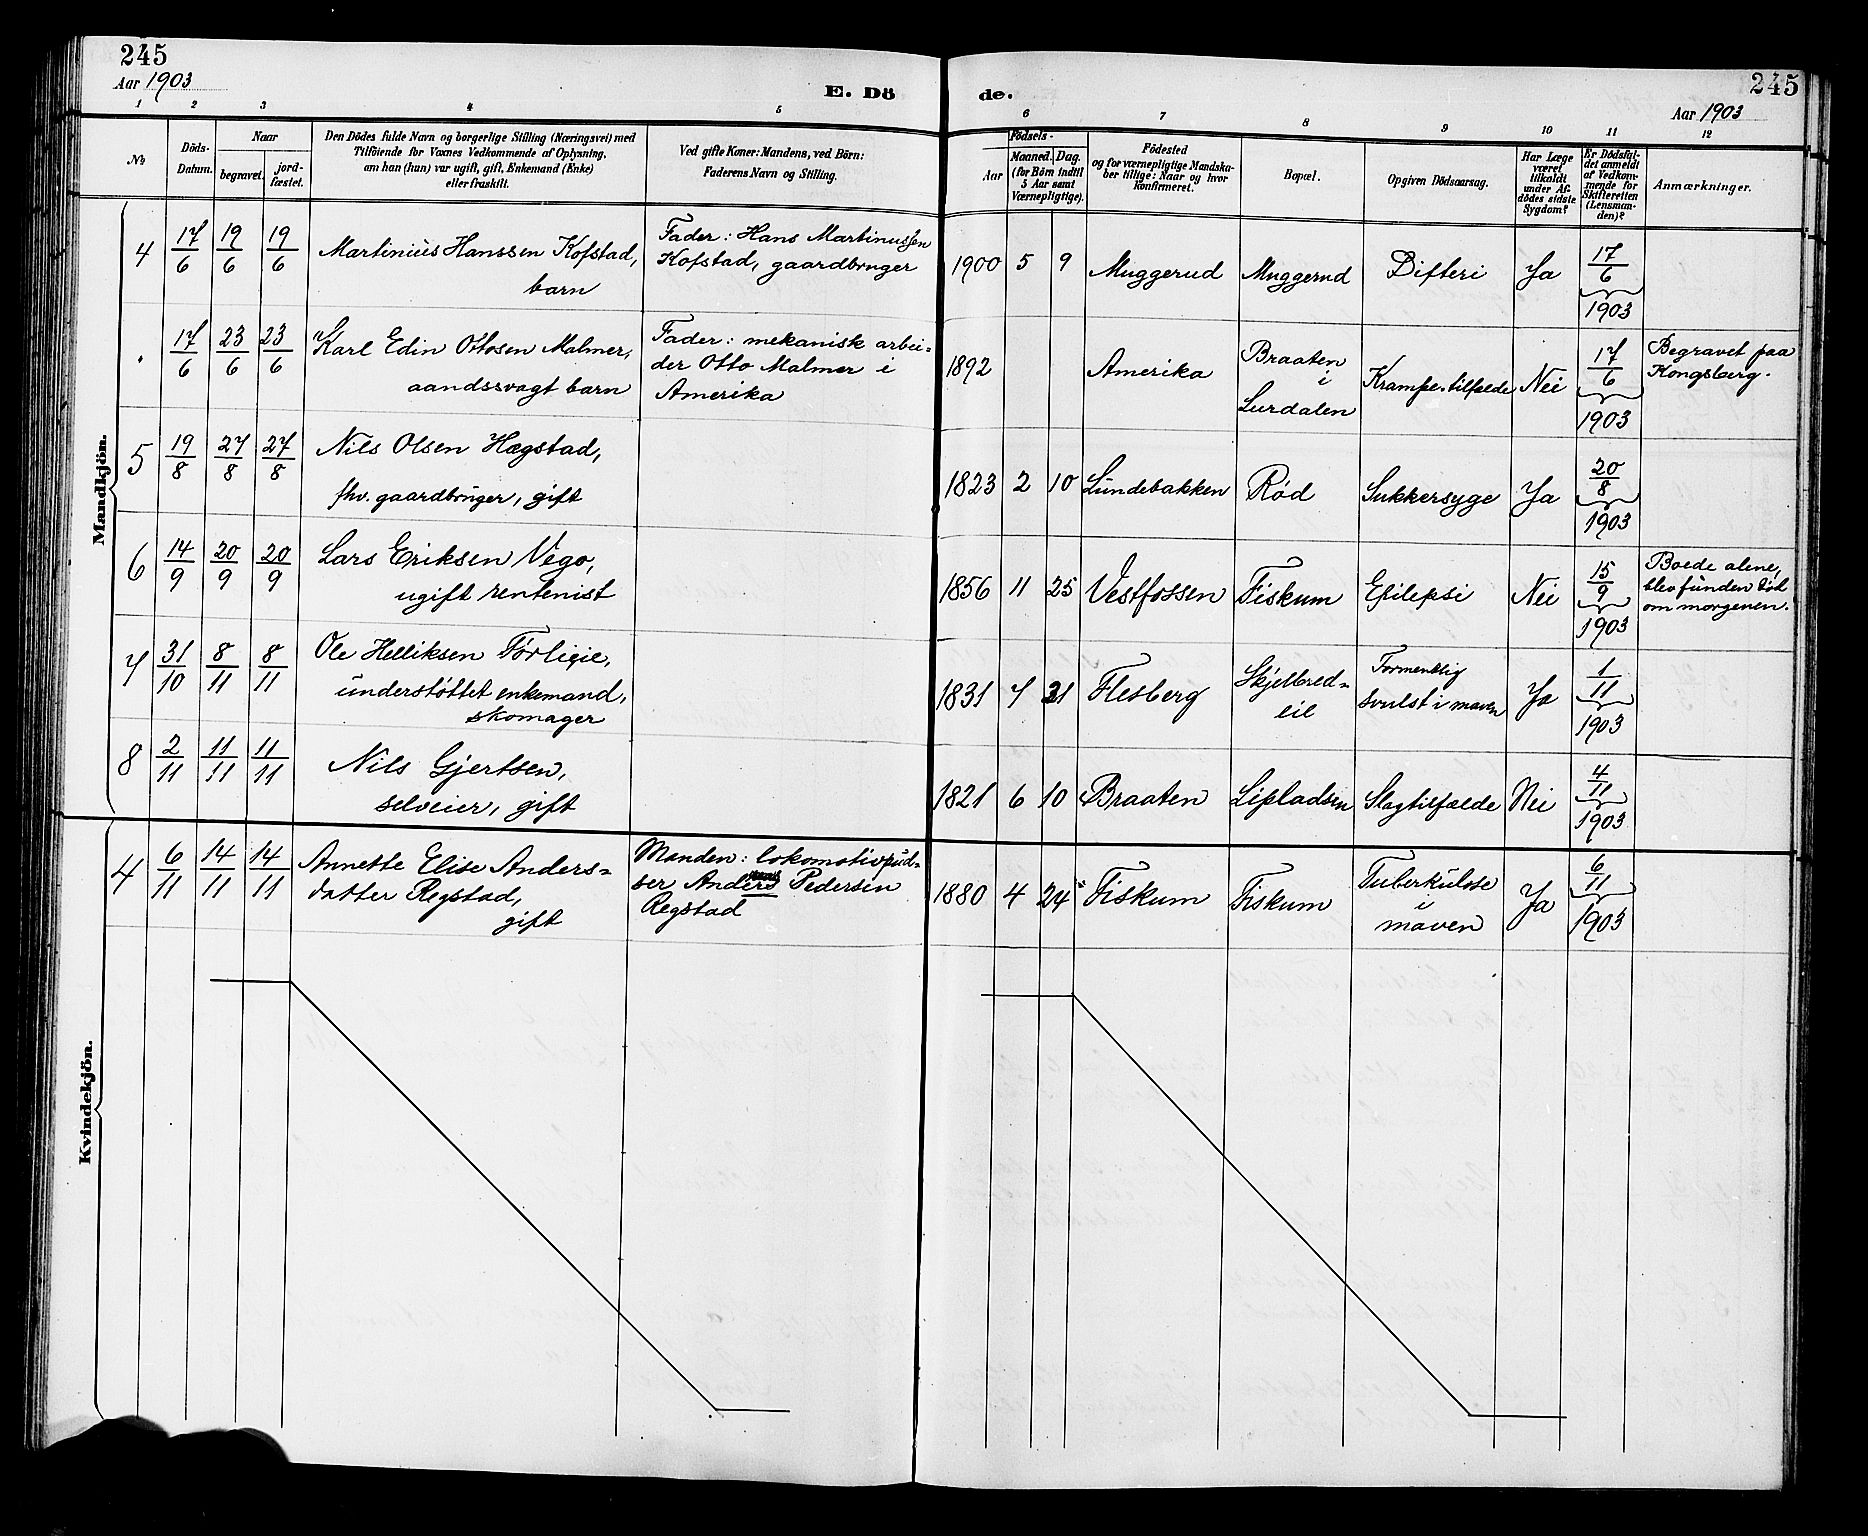 245
Aar 1903
E. Dö
de.
245
Aar 1903
1 2 3 4 5 6 7 8 9 10 11 12
No
Döds-
Datum.
Naar
begravet.
jord-
fæstet.
Den Dödes fulde Navn og borgerlige Stilling (Næringsvei) med
Tilföiende for Voxnes Vedkommende af Oplysning,
om han (hun) var ugift, gift, Enkemand (Enke)
eller fraskilt.
Ved gifte Koner: Mandens, ved Börn:
Faderens Navn og Stilling.
Födsels-
Aar
Maaned. Dag.
(for Börn indtil
5 Aar samt
Værnepligtige).
Födested
og for værnepligtige Mandska-
ber tillige: Naar og hvor
konfirmeret.
Bopæl.
Opgiven Dödsaarsag.
Har Læge
været
tilkaldt
under Af-
dödes sidste
Sygdom?
Er Dödsfal-
det anmeldt
af Vedkom-
mende for
Skifteretten
(Lensman-
den)?
Anmærkninger.
Mandkjön.
4 17/6 19/6 19/6
Martinius Hanssen Kofstad,
barn
Fader: Hans Martinussen
Kofstad, gaardbruger
1900 5 9 Muggerud Muggerud Difteri Ja 17/6 1903
. 17/6 23/6 23/6
Karl Edin Ottosen Malmer,
aandssvagt barn
Fader: mekanisk arbei-
der Otto Malmer i
Amerika
1892 Amerika
Braaten
i
Lurdalen
Krampetilfælde Nei 17/6 1903
Begravet paa
Kongsberg.
5 19/8 27/8 27/8
Nils Olsen Hægstad,
fhv. gaardbruger, gift
1823 2 10 Lundebakken Rød Sukkersyge Ja 20/8 1903
6 14/9 20/9 20/9
Lars Eriksen Vego,
ugift rentenist
1856 11 25 Vestfossen Fiskum Epilepsi Nei 15/9 1903
Boede alene,
blev funden død
om morgenen.
7 31/10 8/11 8/11
Ole Helliksen Førlieie,
understøttet enkemand,
skomager
1831 7 31 Flesberg
Skjelbred-
eie
Formentlig
svulst i maven
Ja 1/11 1903
8 2/11 11/11 11/11
Nils Gjertsen,
selveier, gift
1821 6 10 Braaten Lipladsen Slagtilfælde Nei 4/11 1903
Kvindekjön.
4 6/11 14/11 14/11
Annette Elise Anders-
datter Regstad,
gift
Manden: lokomotivpud-
ser Anders Pedersen
Regstad
1880 4 24 Fiskum Fiskum
Tuberkulose
i
maven
Ja 6/11 1903